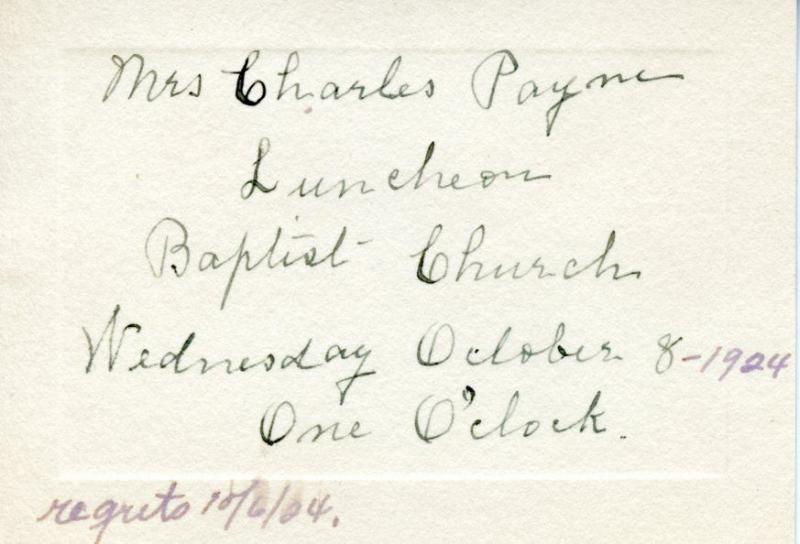 Mrs Charles Payne
Luncheon
Baptist Church
Wednesday October 8-1924
One O'clock.
regrets 10/6/24.